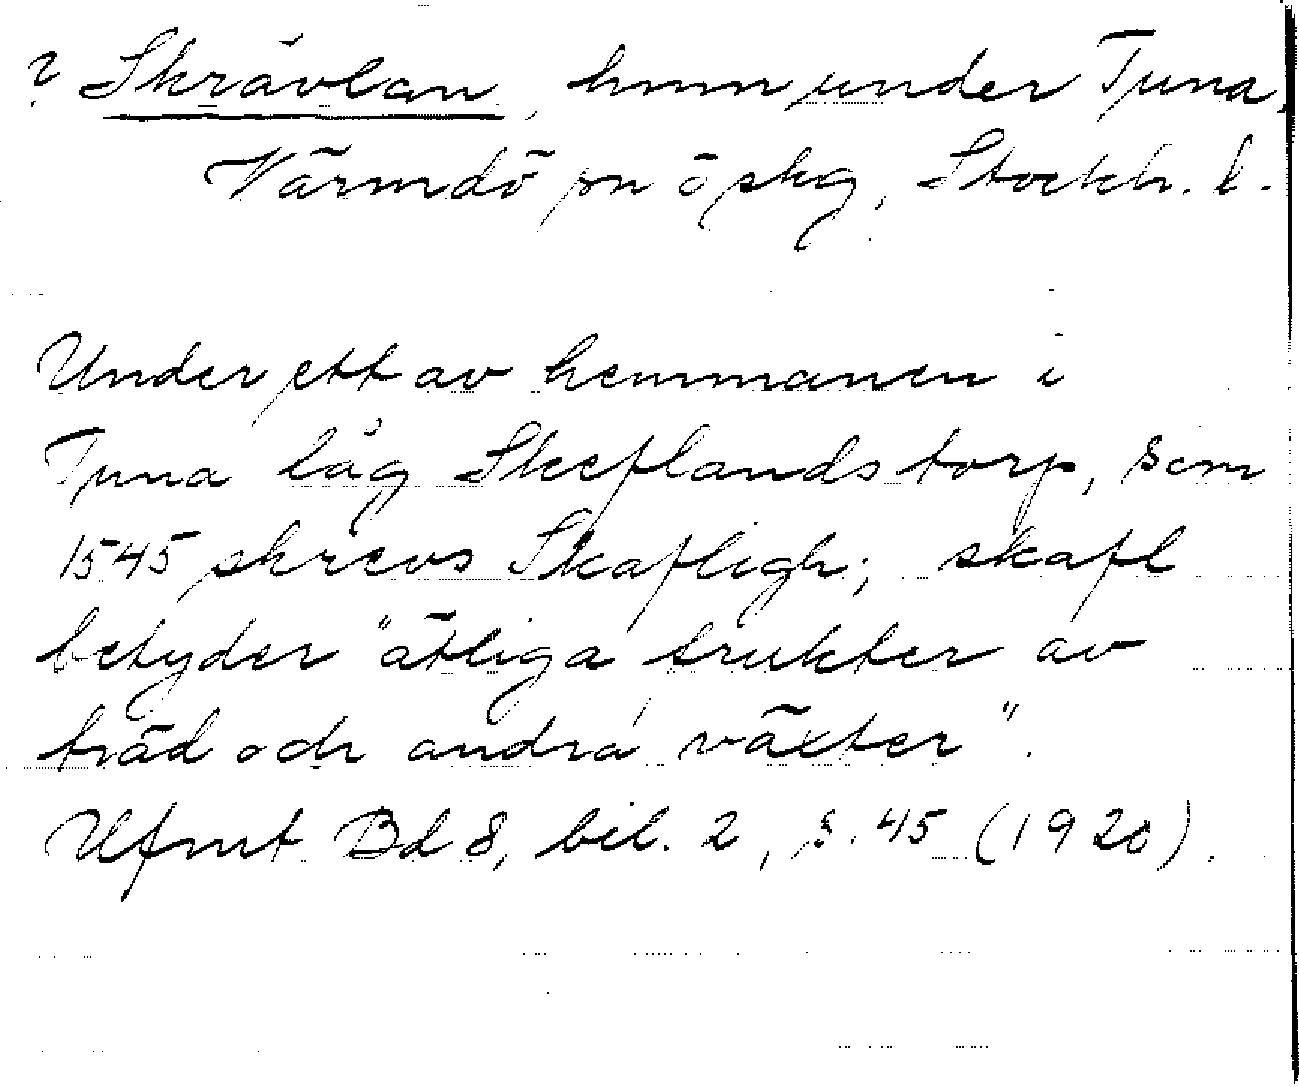 ? Skrävlan, hmn under Tuna,
Värmdö sn ö skg, Stockh. l.
Under ett av hemmanen i
Tuna låg Skeflandstorp, som
1545 skrevs Skafligh; skafl
betyder "ätliga frukter av
träd och andra växter".
Ufmt Bd 8, bil. 2, s. 45 (1920).